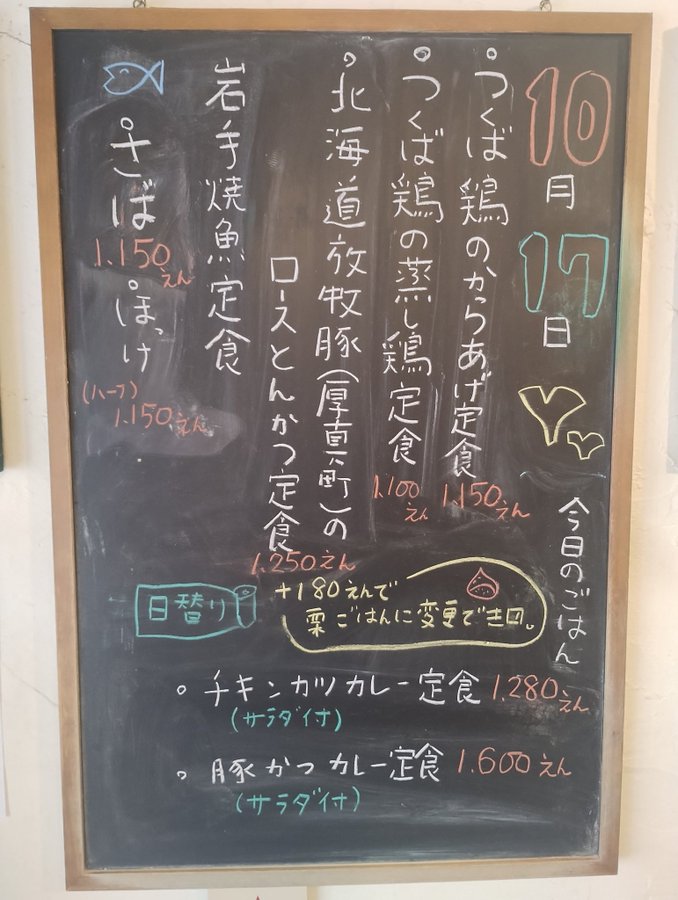 10月17日
今日のごはん
つくば鶏のからあげ定食
1.150えん
つくば鶏の蒸し鶏定食
1.100えん
北海道放牧豚(厚真町)の
ロースとんかつ定食
1.250えん
岩手焼魚定食
さば
1.150えん
ほっけ
(ハーフ)
1.150えん
+180えんで
栗ごはんに変更でき口。
日替り
チキンカツカレー定食 1.280えん
(サラダ付)
豚かつカレー定食 1.600えん
(サラダ付)